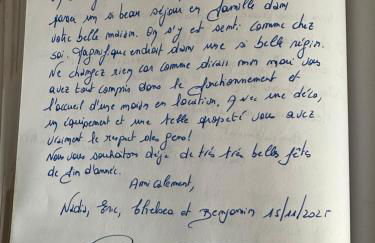 passé un si beau séjour en famille dans
votre belle maison. On s'y est senti comme chez
soi. Magnifique endroit dans une si belle région.
Ne changez rien car comme dirais mon mari vous
avez tout compris dans le fonctionnement et
l'accueil d'une maison en location. Avec une déco,
un équipement et une telle propreté vous avez
vraiment le respect des gens!
Nous vous souhaitons déjà de très très belles fêtes
de fin d'année.
Amicalement,
Nadia, Eric, Chelsea et Benjamin 15/11/2025